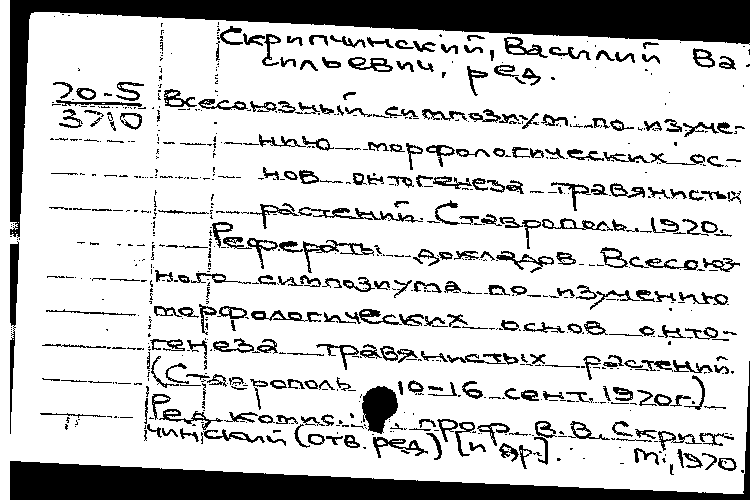 Скрипчинский, Василий Ва-
сильевич, ред.
70-5
3710
Всесоюзный симпозиум по изуче-
нию морфологических ос-
нов онтогенеза травянистых
растений. Ставрополь. 1970.
Рефераты докладов Всесоюз-
ного симпозиума по изучению
морфологических основ онто-
генеза травянистых растений.
(Ставрополь 10-16 сент. 1970г.)
Ред. комис.: проф. В.В. Скрип-
чинский (отв. ред.) [и др]. М., 1970.